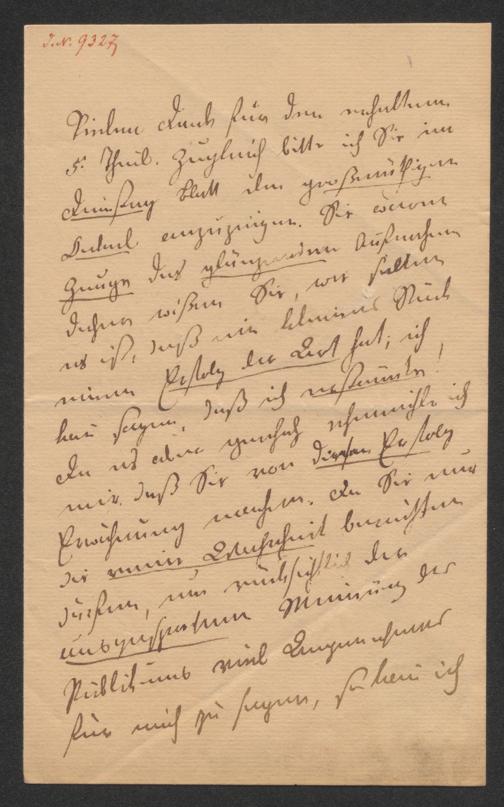 I.N. 9327
Vielen Dank für den erhaltenen
5. Theil. Zugleich bitte ich Sie im
Blatt den großmüthigen
anzuzeigen. Sie waren
Zeuge des glänzenden Aufnahme
daher wißen Sie, wie selten
es ist, daß ein kleines Stück
einen Erfolg der Art hat; ich
kan sagen, daß ich erstaunte!
Da es aber geschah ich
mir, daß Sie von diesem Erfolg
Erwähnung machen. Da Sie nur
die reine Wahrheit
dürfen, um rücksichtlich der
Meinung des
Publikums viel Angenehmes
für mich zu sagen, so kan ich